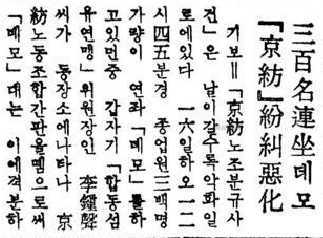 三百名連坐데모
『京紡』紛糾惡化
기보=「京紡노조분규사
건」은 날이갈수록악화일
로에있다 一六일하오一二
시四五분경 종업원三백명
가량이 연좌「데모」를하
고있던중 갑자기「합동섬
유연맹」위원장인 李鍾聲
씨가 동장소에나타나 京
紡노동조합간판을뗌으로써
「데모」대는 이에격분하